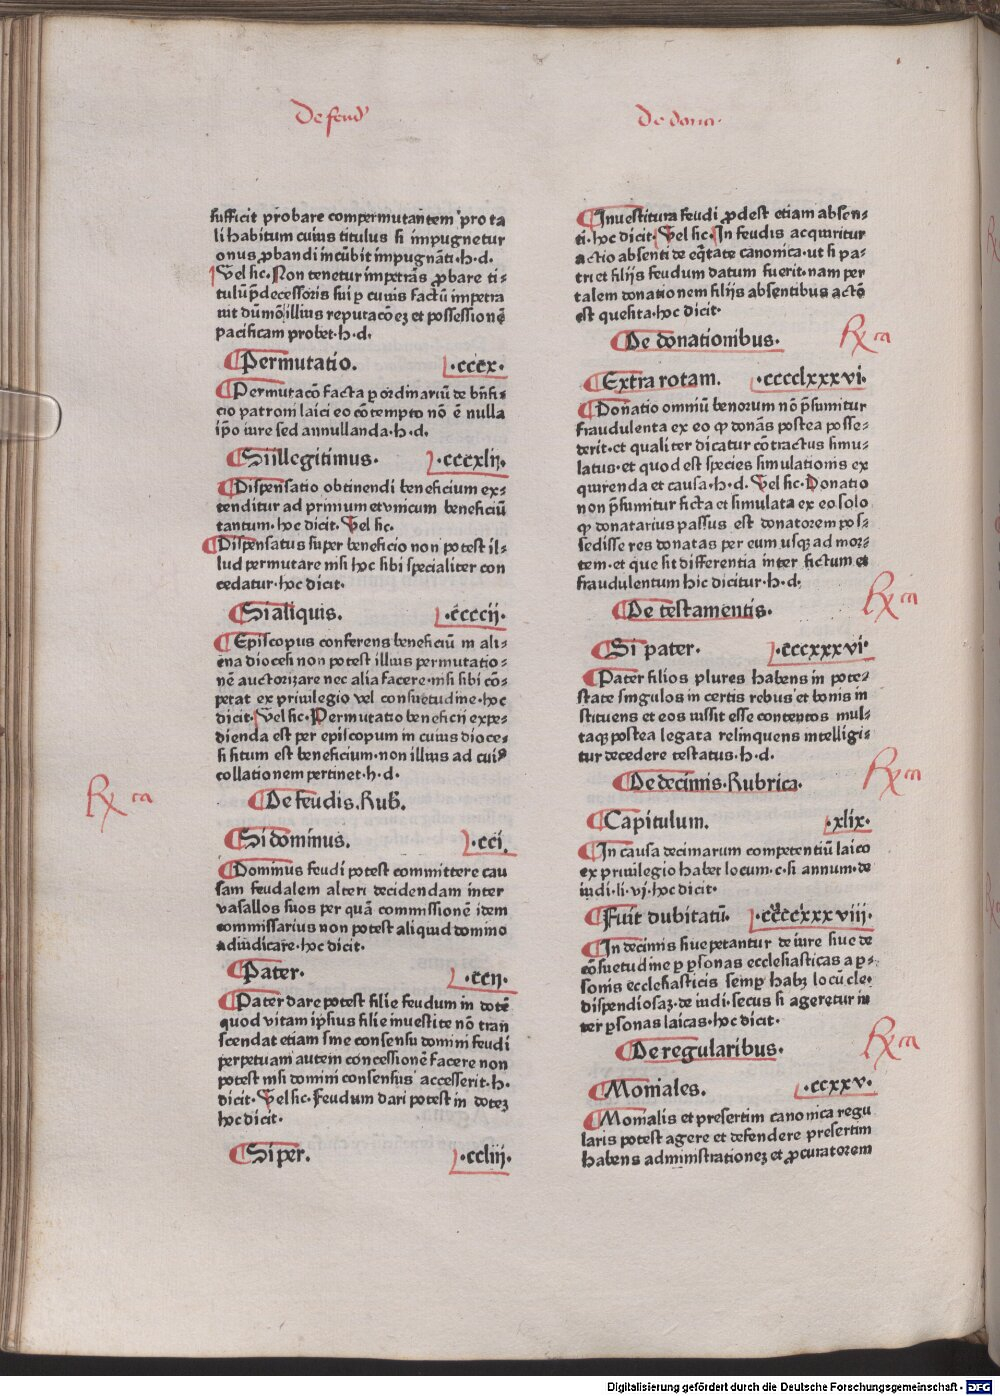 De feud'
sufficit probare compermutantem pro ta
li habitum cuius titulus si impugnetur
onus ꝓbandi incūbit impugnāti·h·d.
Vel sic. Non tenetur impetrās ꝓbare ti-
tulū p̄decessoris sui ꝑ cuius factū impetra
uit dūmō illius reputacōeꝫ et possessionē
pacificam probet·h·d.
Permutatio. ·cccx·
Permutacō facta ꝑ ordinariū de bn̄fi-
cio patroni laici eo cōtempto nō ē nulla
ip̄o iure sed annullanda·h·d.
Si illegitimus. ·cccxlij.
Dispensatio obtinendi beneficium ex-
tenditur ad primum et vnicum beneficiū
tantum·hoc dicit. Vel sic.
Dispensatus super beneficio non potest il-
lud permutare nisi hoc sibi specialiter con
cedatur·hoc dicit.
Si aliquis. ·ccccij.
Episcopus conferens beneficiū in ali-
ena diocesi non potest illius permutatio-
nē auctorizare nec alia facere·nisi sibi cō-
petat ex priuilegio vel consuetudine·hoc
dicit. Vel sic. Permutatio beneficij expe-
dienda est per episcopum in cuius dioce-
si situm est beneficium·non illius ad cuiꝰ
collationem pertinet·h·d.
Rx ca
De feudis. Rub.
Si dominus. ·cci.
Dominus feudi potest committere cau
sam feudalem alteri decidendam inter
vasallos suos per quā commissionē idem
commissarius non potest aliquid domino
adiudicare·hoc dicit.
Pater. ·ccij.
Pater dare potest filie feudum in dotē
quod vitam ipsius filie inuestite nō tran
scendat etiam sine consensu domini feudi
perpetuam autem concessionē facere non
potest nisi domini consensus accesserit·h·
dicit. Vel sic. Feudum dari potest in doteꝫ
hoc dicit.
Si per. ·ccliij.
De dona·
Inuestitura feudi ꝓdest etiam absen-
ti·hoc dicit. Vel sic. In feudis acquiritur
actio absenti de eq̄tate canonica·ut si pa-
tri et filijs feudum datum fuerit·nam per
talem donationem filijs absentibus actō
est quesita·hoc dicit·
De donationibus. Rx ca
Extra rotam. ·cccclxxxvi·
Donatio omniū bonorum nō p̄sumitur
fraudulenta ex eo ꝙ donās postea posse-
derit·et qualiter dicatur cōtractus simu-
latus·et quod est species simulationis ex
quirenda et causa·h·d. Vel sic. Donatio
non p̄sumitur ficta et simulata ex eo solo
ꝙ donatarius passus est donatorem pos-
sedisse res donatas per eum usqꝫ ad mor-
tem·et que sit differentia inter fictum et
fraudulentum hic dicitur·h·d.
De testamentis. Rx ca
Si pater. ·cccxxxvi·
Pater filios plures habens in pote-
state singulos in certis rebus et bonis in
stituens et eos iussit esse contentos mul-
taqꝫ postea legata relinquens intelligi-
tur decedere testatus·h·d.
De decimis. Rubrica. Rx ca
Capitulum. ·xlix·
In causa decimarum competentiū laico
ex priuilegio habet locum·c·si annum·de
iudi·li·vj·hoc dicit·
Fuit dubitatū. ·ccccxxxviij.
In decimis siue petantur de iure siue de
cōsuetudine ꝑ ꝑsonas ecclesiasticas a ꝑ-
sonis ecclesiasticis semꝑ habꝫ locū cle·
dispendiosaꝫ·de iudi·secus si ageretur in
ter ꝑsonas laicas·hoc dicit·
De regularibus. Rx ca
Moniales. ·ccxxv·
Monialis et presertim canonica regu
laris potest agere et defendere presertim
habens administrationeꝫ et ꝓcuratorem
Digitalisierung gefördert durch die Deutsche Forschungsgemeinschaft - DFG